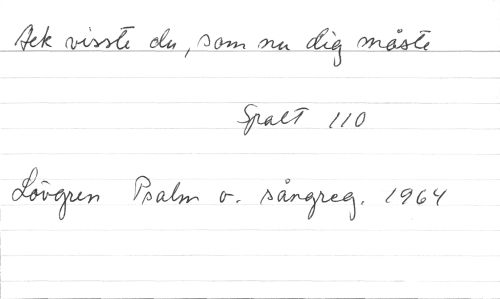 Ack visste du, som nu dig måste
Spalt 110
Lövgren Psalm o. sångreg. 1964